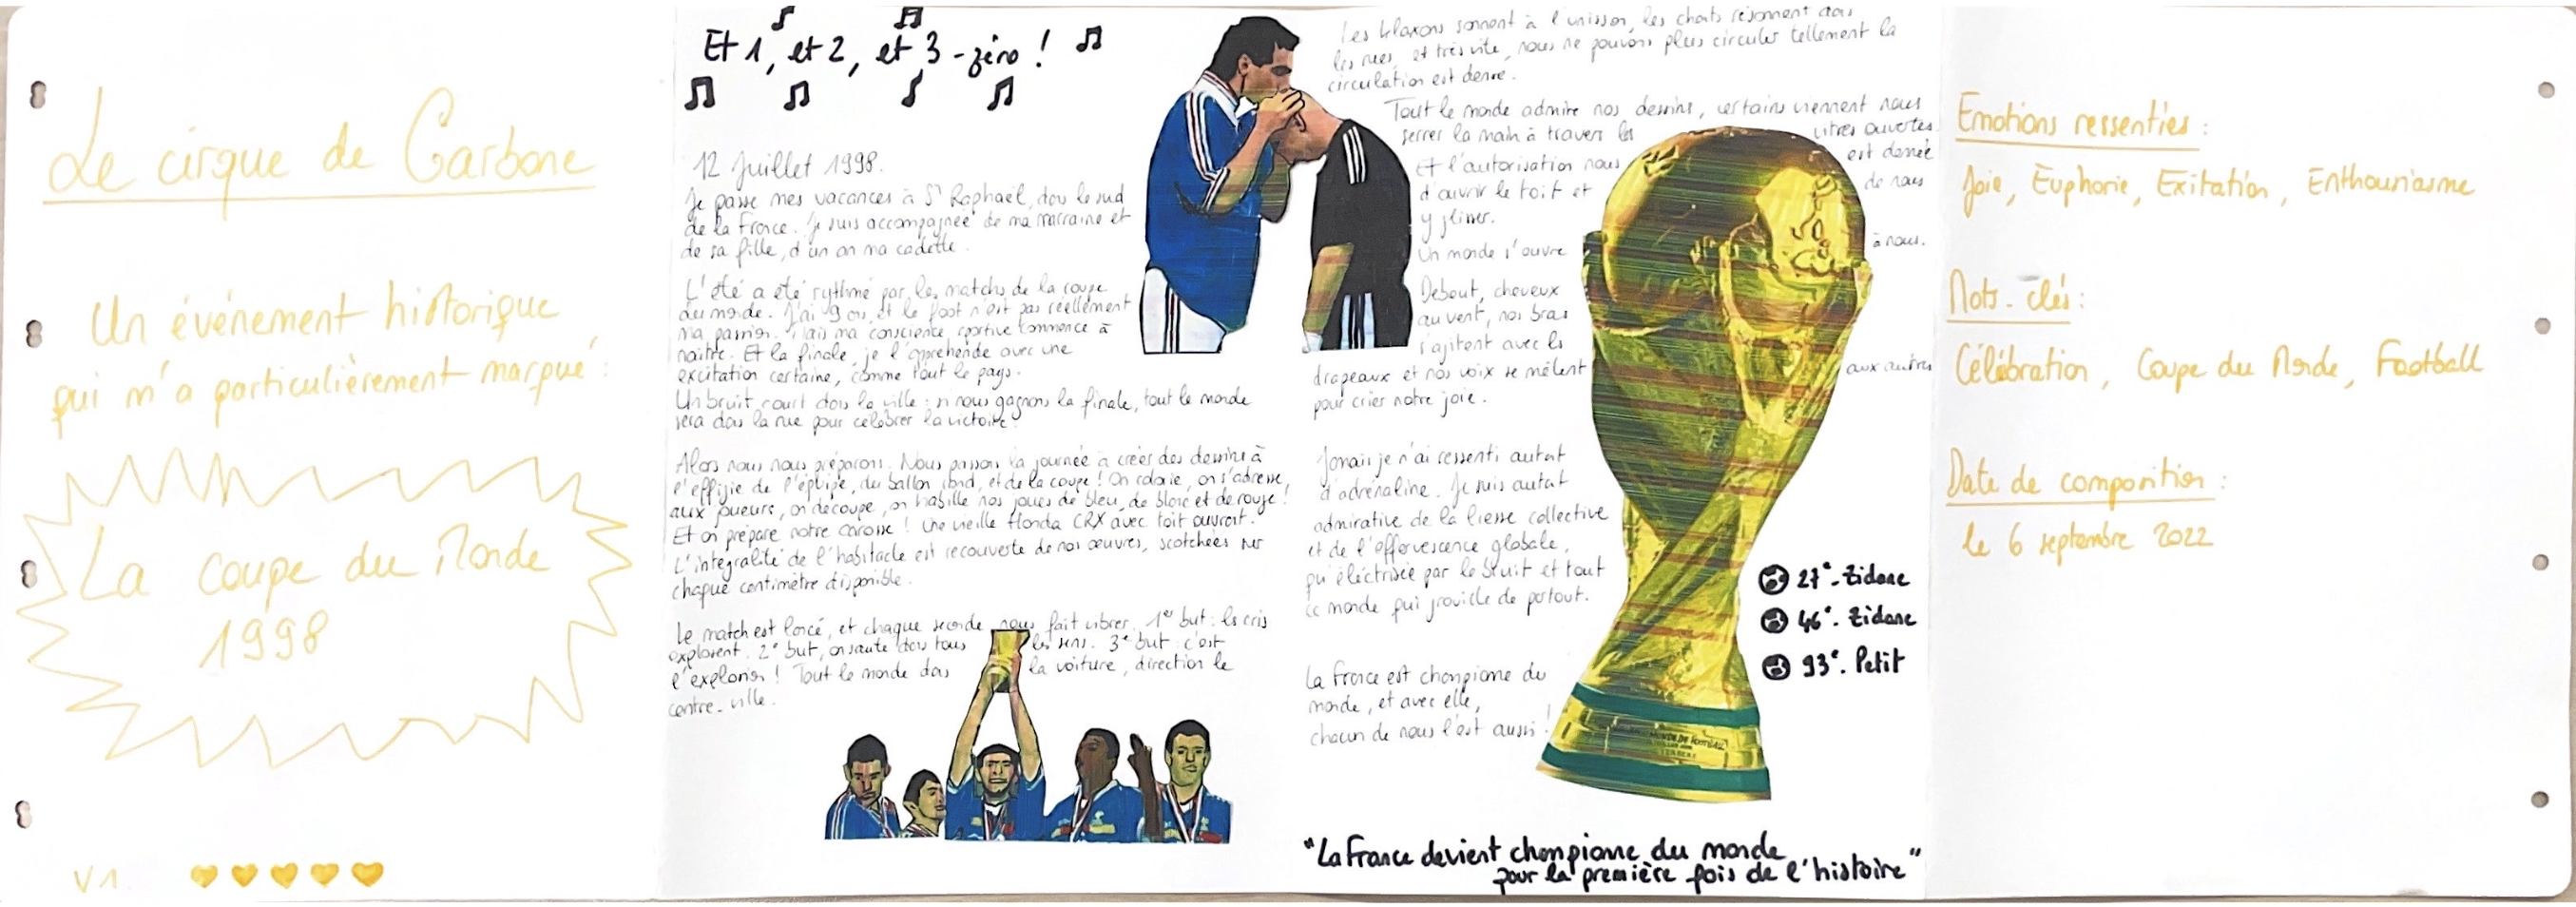 Le cirque de Carbone
Un événement historique
qui m'a particulièrement marqué :
La coupe du Monde
1998
V1.
Et 1, et 2, et 3 - zéro !
12 Juillet 1998.
Je passe mes vacances à St Raphaël, dans le sud
de la France. Je suis accompagnée de ma marraine et
de sa fille, d'un an ma cadette.
L'été a été rythmé par les matchs de la coupe
du monde. J'ai 9 ans, et le foot n'est pas réellement
ma passion. Mais ma conscience sportive commence à
naître. Et la finale, je l'appréhende avec une
excitation certaine, comme tout le pays.
Un bruit court dans la ville : si nous gagnons la finale, tout le monde
sera dans la rue pour célébrer la victoire.
Alors nous nous préparons. Nous passons la journée à créer des dessins à
l'effigie de l'équipe, du ballon rond, et de la coupe ! On colorie, on s'adresse,
aux joueurs, on découpe, on habille nos joues de bleu, de blanc et de rouge !
Et on prépare notre carosse ! Une vieille Honda CRX avec toit ouvrant.
L'intégralité de l'habitacle est recouverte de nos œuvres, scotchées sur
chaque centimètre disponible.
Le match est lancé, et chaque seconde nous fait vibrer. 1er but : les cris
explosent. 2e but, on saute dans tous les sens. 3e but : c'est
l'explosion ! Tout le monde dans la voiture, direction le
centre-ville.
Les klaxons sonnent à l'unisson, les chants résonnent dans
les rues, et très vite, nous ne pouvons plus circuler tellement la
circulation est dense.
Tout le monde admire nos dessins, certains viennent nous
serrer la main à travers les vitres ouvertes.
Et l'autorisation nous est donnée
d'ouvrir le toit et de nous
y glisser.
Un monde s'ouvre à nous.
Debout, cheveux
au vent, nos bras
s'agitent avec les
drapeaux et nos voix se mêlent aux autres
pour crier notre joie.
Jamais je n'ai ressenti autant
d'adrénaline. Je suis autant
admirative de la liesse collective
et de l'effervescence globale,
qu'éléctrisée par le bruit et tout
ce monde qui grouille de partout.
La France est championne du
monde, et avec elle,
chacun de nous l'est aussi !
27e - Zidane
46e - Zidane
93e - Petit
"La France devient championne du monde
pour la première fois de l'histoire"
Emotions ressenties :
Joie, Euphorie, Exitation, Enthousiasme
Mots-clés :
Célébration, Coupe du Monde, Football
Date de composition :
le 6 septembre 2022